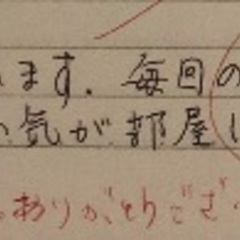 ます。毎回の
気が部屋
ありがとうござ